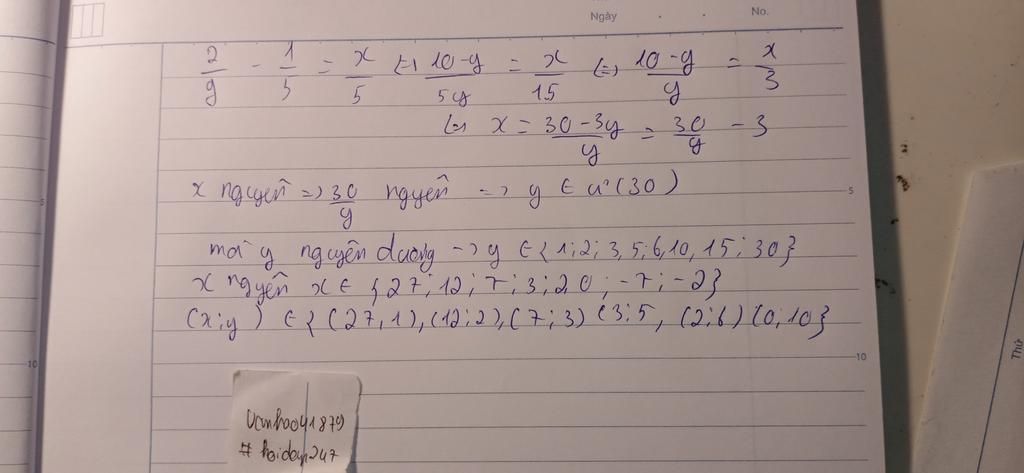 Ngày . . No.
2/y - 1/5 = x/5 ⇔ (10-y)/5y = x/15 ⇔ (10-y)/y = x/3
⇔ x = (30-3y)/y = 30/y - 3
x nguyên => 30/y nguyên => y ∈ Ư(30)
mà y nguyên dương -> y ∈ {1;2;3,5;6,10,15;30}
x nguyên x ∈ {27;12;7;3;2,0;-7;-2}
(x;y) ∈ {(27,1),(12;2),(7;3) (3;5, (2;6) (0;10}
Vanhao41879
# hoidap247
5
10
5
10
Thứ